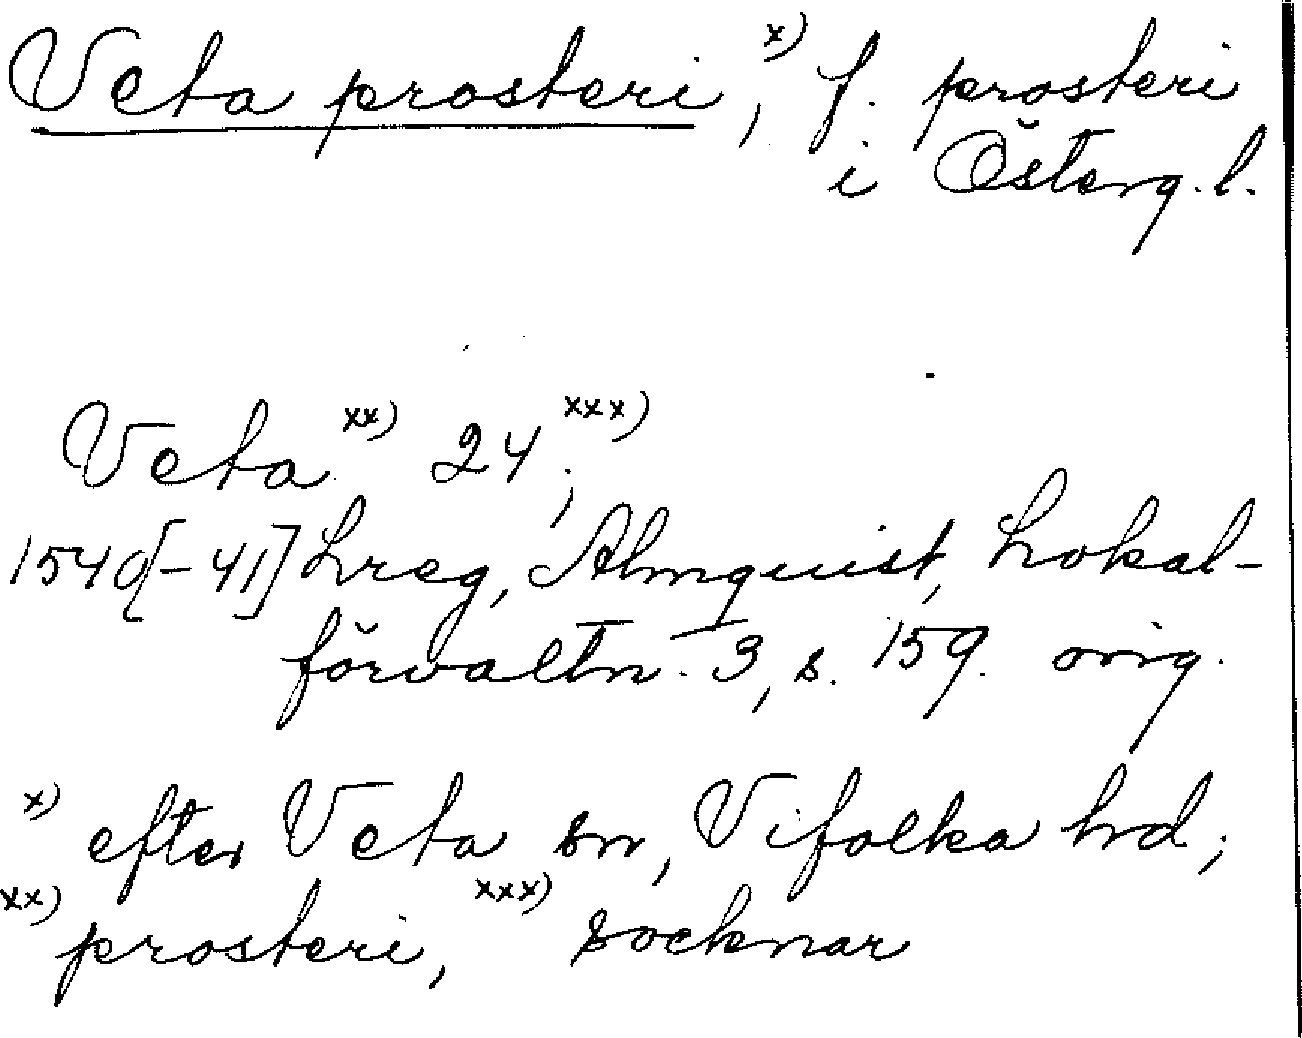 Veta prosteri, x) f. prosteri
i Österg.l.
Veta xx) 24 xxx);
1540[-41] Lreg, Almquist, Lokal-
förvaltn. 3, s. 159. orig.
x) efter Veta sn, Vifolka hrd;
xx) prosteri, xxx) socknar